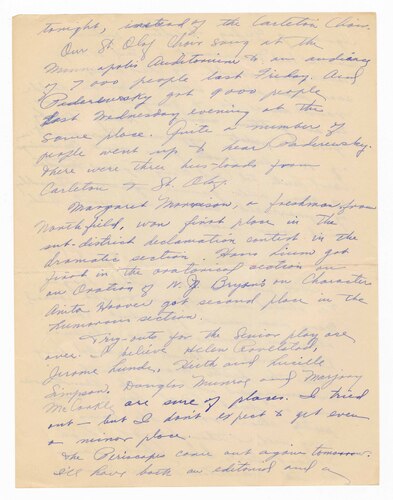 tonight, instead of the Carleton Choir.
Our St. Olaf Choir sang at the
Minneapolis Auditorium to an audience
of 7000 people last Friday. And
Paderewsky got 9000 people
last Wednesday evening at the
same place. Quite a number of
people went up to hear Paderewsky.
There were three bus-loads from
Carleton & St. Olaf.
Margaret Morrison, a freshman from
Northfield, won first place in the
sub-district declamation contest in the
dramatic section. Hans got
first in the oratorical section on
an Oration of W. J. Bryan's on Character
Anita Hoover got second place in the
humorous section.
Try-outs for the Senior play are
over. I believe Helen
Jerome Lunde, Ruth and Lucille
Simpson, Douglas Munroe and Marjory
are sure of places. I tried
out - but I don't expect to get even
a minor place.
The Periscopes come out again tomorrow.
I'll have both an editorial and a